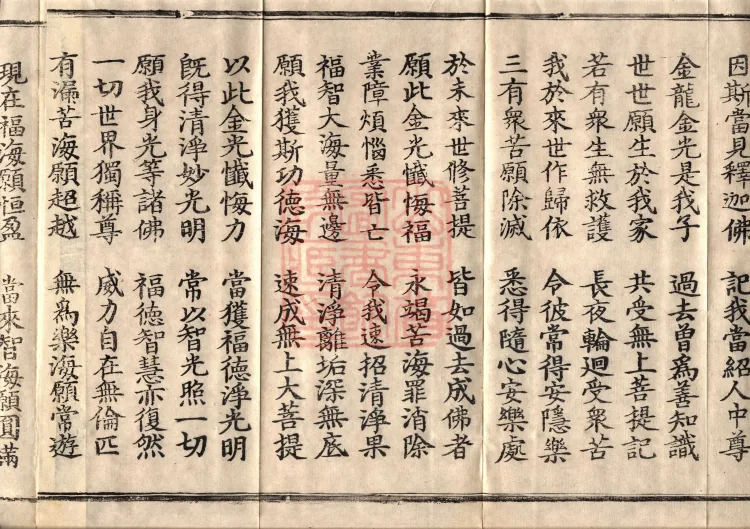 因斯當見釋迦佛　記我當紹人中尊
金龍金光是我子　過去曾爲善知識
世世願生於我家　共受無上菩提記
若有衆生無救護　長夜輪迴受衆苦
我於來世作歸依　令彼常得安隱樂
三有衆苦願除滅　悉得隨心安樂處
於未來世修菩提　皆如過去成佛者
願此金光懺悔福　永竭苦海罪消除
業障煩惱悉皆亡　令我速招清淨果
福智大海量無邊　清淨離垢深無底
願我獲斯功德海　速成無上大菩提
以此金光懺悔力　當獲福德淨光明
旣得清淨妙光明　常以智光照一切
願我身光等諸佛　福德智慧亦復然
一切世界獨稱尊　威力自在無倫匹
有漏苦海願超越　無爲樂海願常遊
現在福海願恒盈　當來智海願圓滿